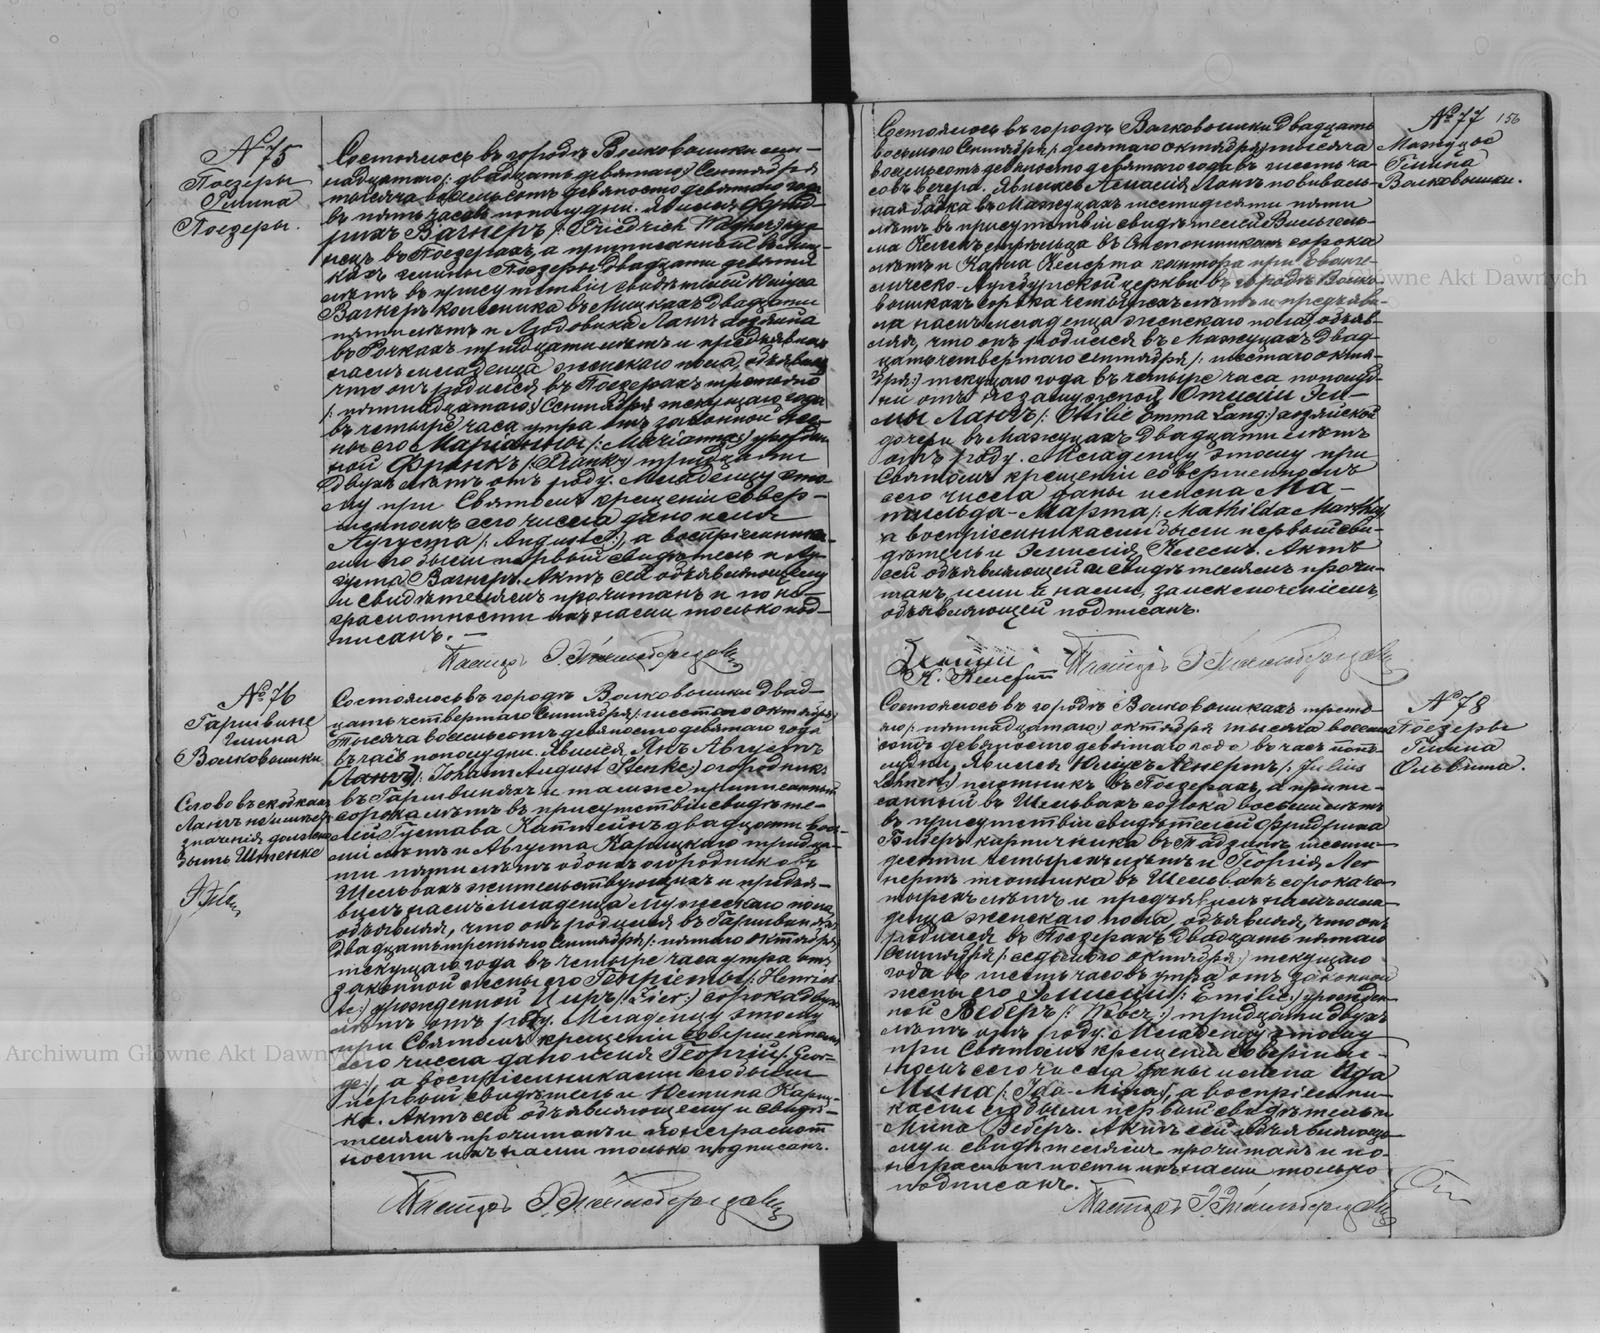 № 75
Поезеры
Гмина
Поезеры.
Состоялось въ городѣ Волковышки сем-
надцатаго /: двадцать девятаго:/ Сентября
тысяча восемьсотъ девяносто девятаго года
въ пять часовъ пополудни. Явился Фрид-
рихъ Вагнеръ /: Friedrich Wagner:/
въ Поезерахъ, а приписанный въ
кахъ гмины Поезеры двадцати девяти
лѣтъ въ присутствіи свидѣтелей Юліуса
Вагнеръ колесника въ двадцати
пяти лѣтъ и Людовика Лангъ хозяина
въ Рочкахъ тридцати лѣтъ и предъявилъ
намъ младенца женскаго пола, объявляя
что онъ родился въ Поезерахъ третьяго
/: пятнадцатаго:/ Сентября текущаго года
въ четыре часа утра отъ законной же-
ны его Маріанны /: Marianna:/ урожден-
ной Франкъ /: Frank:/ тридцати
двухъ лѣтъ отъ роду. Младенцу это-
му при Святомъ крещеніи совер-
шенномъ сего числа дано имя
Августа /: August:/, а воспріемника-
ми его были первый свидѣтель и Ав-
густа Вагнеръ. Актъ сей объявляющему
и свидѣтелямъ прочитанъ и по не-
грамотности ихъ нами только под-
писанъ. —
Пасторъ
№ 76
Гаршвине
Гмина
Волковышки
Слово въ скобкахъ
Лангъ не имѣетъ
значенія должно
быть Штенке
Состоялось въ городѣ Волковышки двад-
цать четвертаго Сентября /: шестаго октября:/
тысяча восемьсотъ девяносто девятаго года
въ часъ пополудни. Явился Янъ Августъ
Лангъ /: Johann August Stenke:/ огородникъ
въ Гаршвиняхъ и тамже приписанный
сорока лѣтъ въ присутствіи свидѣте-
лей Густава Каптейнъ двадцати вось-
ми лѣтъ и Августа Карицкаго тридца-
ти пяти лѣтъ обоихъ огородниковъ
Шельвахъ жительствующихъ и предъя-
вилъ намъ младенца мужескаго пола
объявляя, что онъ родился въ Гаршвиняхъ
двадцать третьяго Сентября /: пятаго октября:/
текущаго года въ четыре часа утра отъ
законной жены его Генріеты /: Henriet-
te:/ урожденной Циръ /: Zier:/ сорока двухъ
лѣтъ отъ роду. Младенцу этому
при Святомъ крещеніи совершенномъ
сего числа дано имя Георгій /: Geor-
ge:/, а воспріемниками его были
первый свидѣтель и Юстина Кариц-
ка. Актъ сей объявляющему и свидѣ-
телямъ прочитанъ и по неграмот-
ности ихъ нами только подписанъ.
Пасторъ
156
№ 77
Мажуцы
Гмина
Волковышки.
Состоялось въ городѣ Волковышки двадцать
восьмаго Сентября /: десятаго октября:/ тысяча
восемьсотъ девяносто девятаго года въ шесть ча-
совъ вечера. Явилась Амалія Лангъ повиваль-
ная бабка въ Мажуцахъ шестидесяти пяти
лѣтъ въ присутствіи свидѣтелей Вильгель-
ма въ сорока
лѣтъ и Карла кантора при Еванге-
лическо-Аугсбургской церкви въ городѣ Волко-
вышкахъ сорока четырехъ лѣтъ и предъяви-
ла намъ младенца женскаго пола, объяв-
ляя, что онъ родился въ Мажуцахъ двад-
цать четвертаго сентября /: шестаго октя-
бря:/ текущаго года въ четыре часа пополуд-
ни отъ незамужной Отиліи Эм-
мы Лангъ /: Otilie Emma Lang:/ хозяйской
дочери въ Мажуцахъ двадцати лѣтъ
отъ роду. Младенцу этому при
Святомъ крещеніи совершенномъ
сего числа даны имена Ма-
тильда-Марта /: Mathilda Martha:/
а воспріемниками были первый сви-
дѣтель и Эмилія Актъ
сей объявляющей и свидѣтелямъ прочи-
танъ, ими и нами, за исключеніемъ
объявляющей подписанъ.
Пасторъ
№ 78
Поезеры
Гмина
Ольвита.
Состоялось въ городѣ Волковышкахъ третья-
го /: пятнадцатаго:/ октября тысяча восемь-
сотъ девяносто девятаго года въ часъ попо-
лудни, Явился Юліусъ Ленертъ /: Julius
Lehnert:/ плотникъ въ Поезерахъ, а припи-
санный въ Шельвахъ сорока восьми лѣтъ
въ присутствіи свидѣтелей Фридриха
Веберъ кирпичника въ шести-
десяти четырехъ лѣтъ и Георгія Ле-
нертъ плотника въ Шельвахъ сорока че-
тырехъ лѣтъ и предъявилъ намъ мла-
денца женскаго пола, объявляя, что онъ
родился въ Поезерахъ двадцать пятаго
Сентября /: седьмаго октября:/ текущаго
года въ шесть часовъ утра отъ законной
жены его Эмиліи /: Emilie:/ урожден-
ной Веберъ /: Weber:/ тридцати двухъ
лѣтъ отъ роду. Младенцу этому
при Святомъ крещеніи совершен-
номъ сего числа даны имена Ида
Мина /: Ida Mina:/, а воспріемни-
ками его были первый свидѣтель и
Мина Веберъ. Актъ сей объявляюще-
му и свидѣтелямъ прочитанъ и по
неграмотности ихъ нами только
подписанъ.
Пасторъ
Archiwum Główne Akt Dawnych
Główne Akt Dawnych